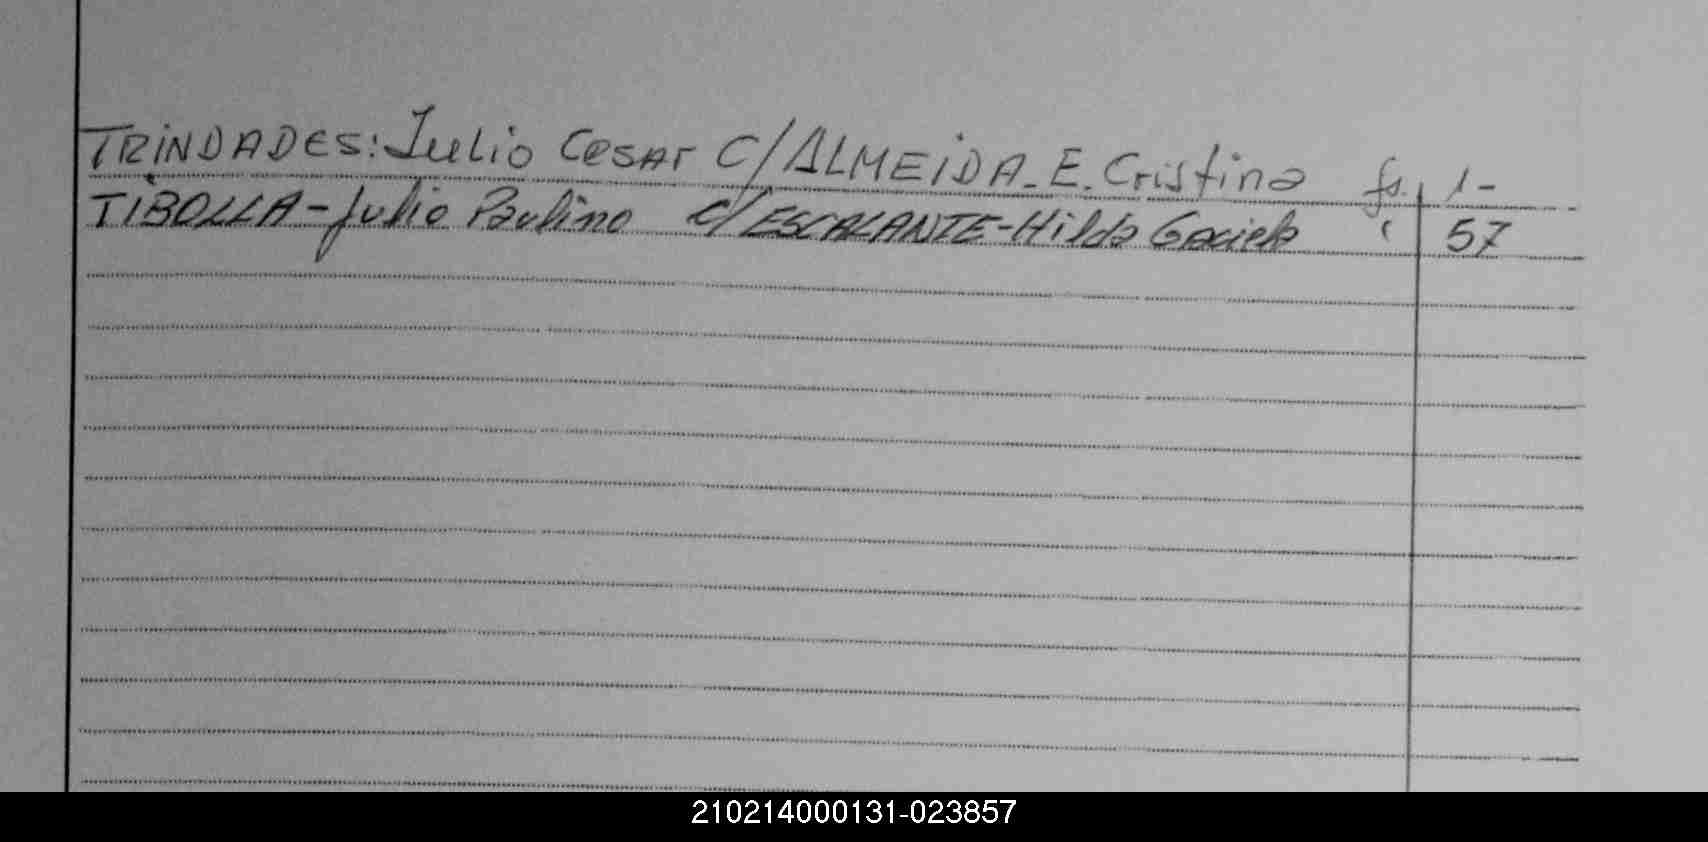 TRINDADES: Julio Cesar C/ ALMEIDA. E. Cristina fs. 1-
TIBOLLA - Julio Paulino c/ ESCALANTE - Hilda Graciela " 57
210214000131-023857